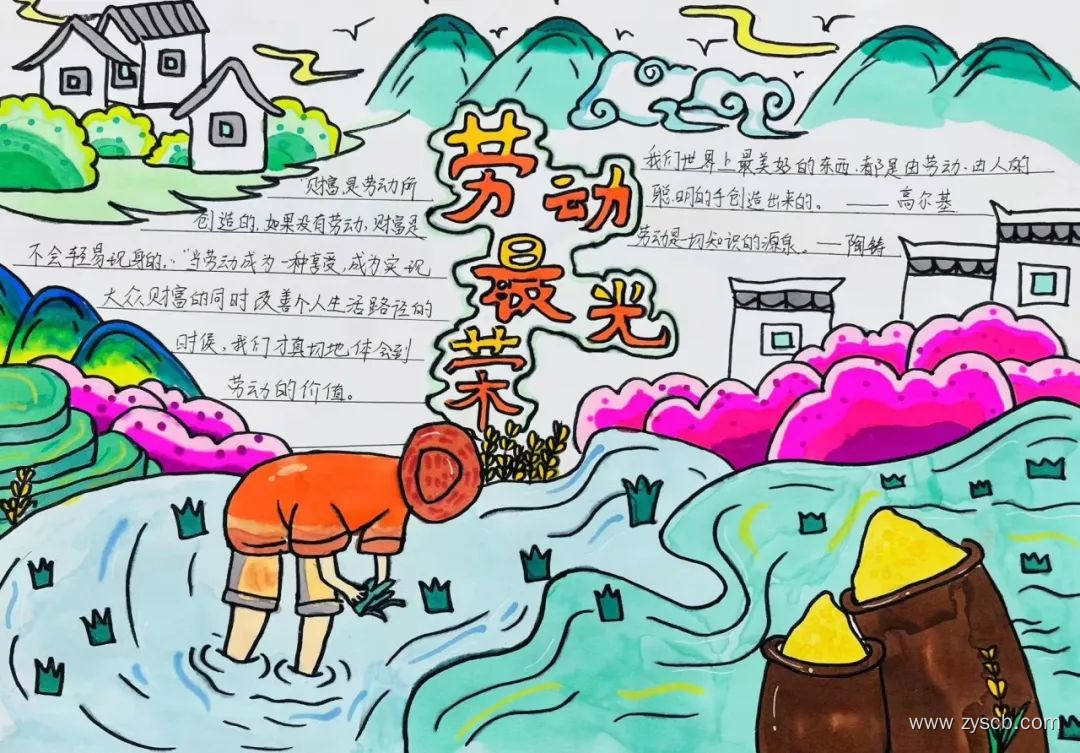 劳动
最光
荣
"财富是劳动所
创造的,如果没有劳动,财富是
不会轻易现身的,"当劳动成为一种享受,成为实现
大众财富的同时改善个人生活路径的
时侯,我们才真切地体会到
劳动的价值。
我们世界上最美好的东西,都是由劳动.由人的
聪明的手创造出来的。——高尔基
劳动是一切知识的源泉。—陶铸
www.zyscb.com